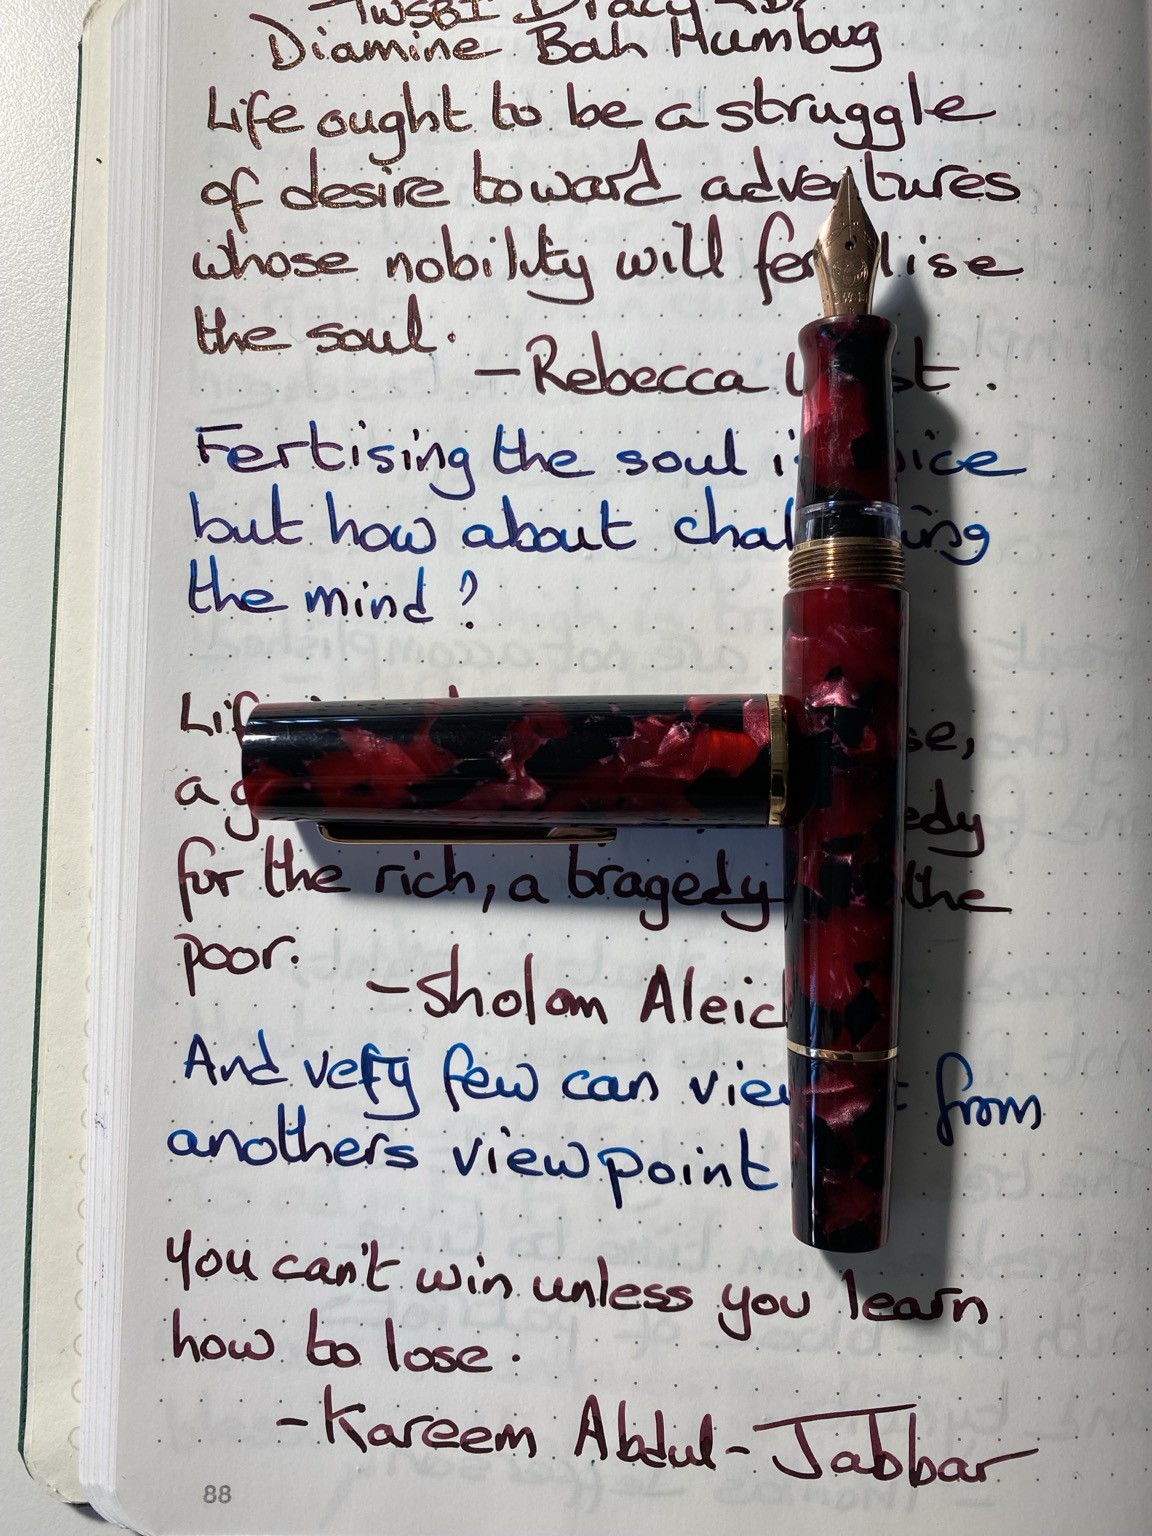 TWSBI
Diamine Bah Humbug
Life ought to be a struggle
of desire toward adventures
whose nobility will fer lise
the soul.
- Rebecca st.
Fertising the soul
but how about
the mind?
a
for the rich, a tragedy the
poor.
- Sholom
And very few can from
anothers viewpoint
You can't win unless you learn
how to lose.
- Kareem Abdul-Jabbar
88